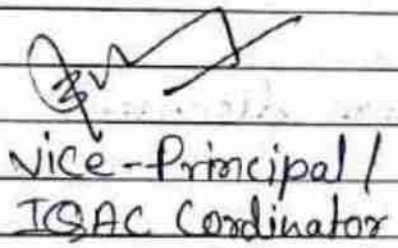 Vice-Principal /
IQAC Cordinator